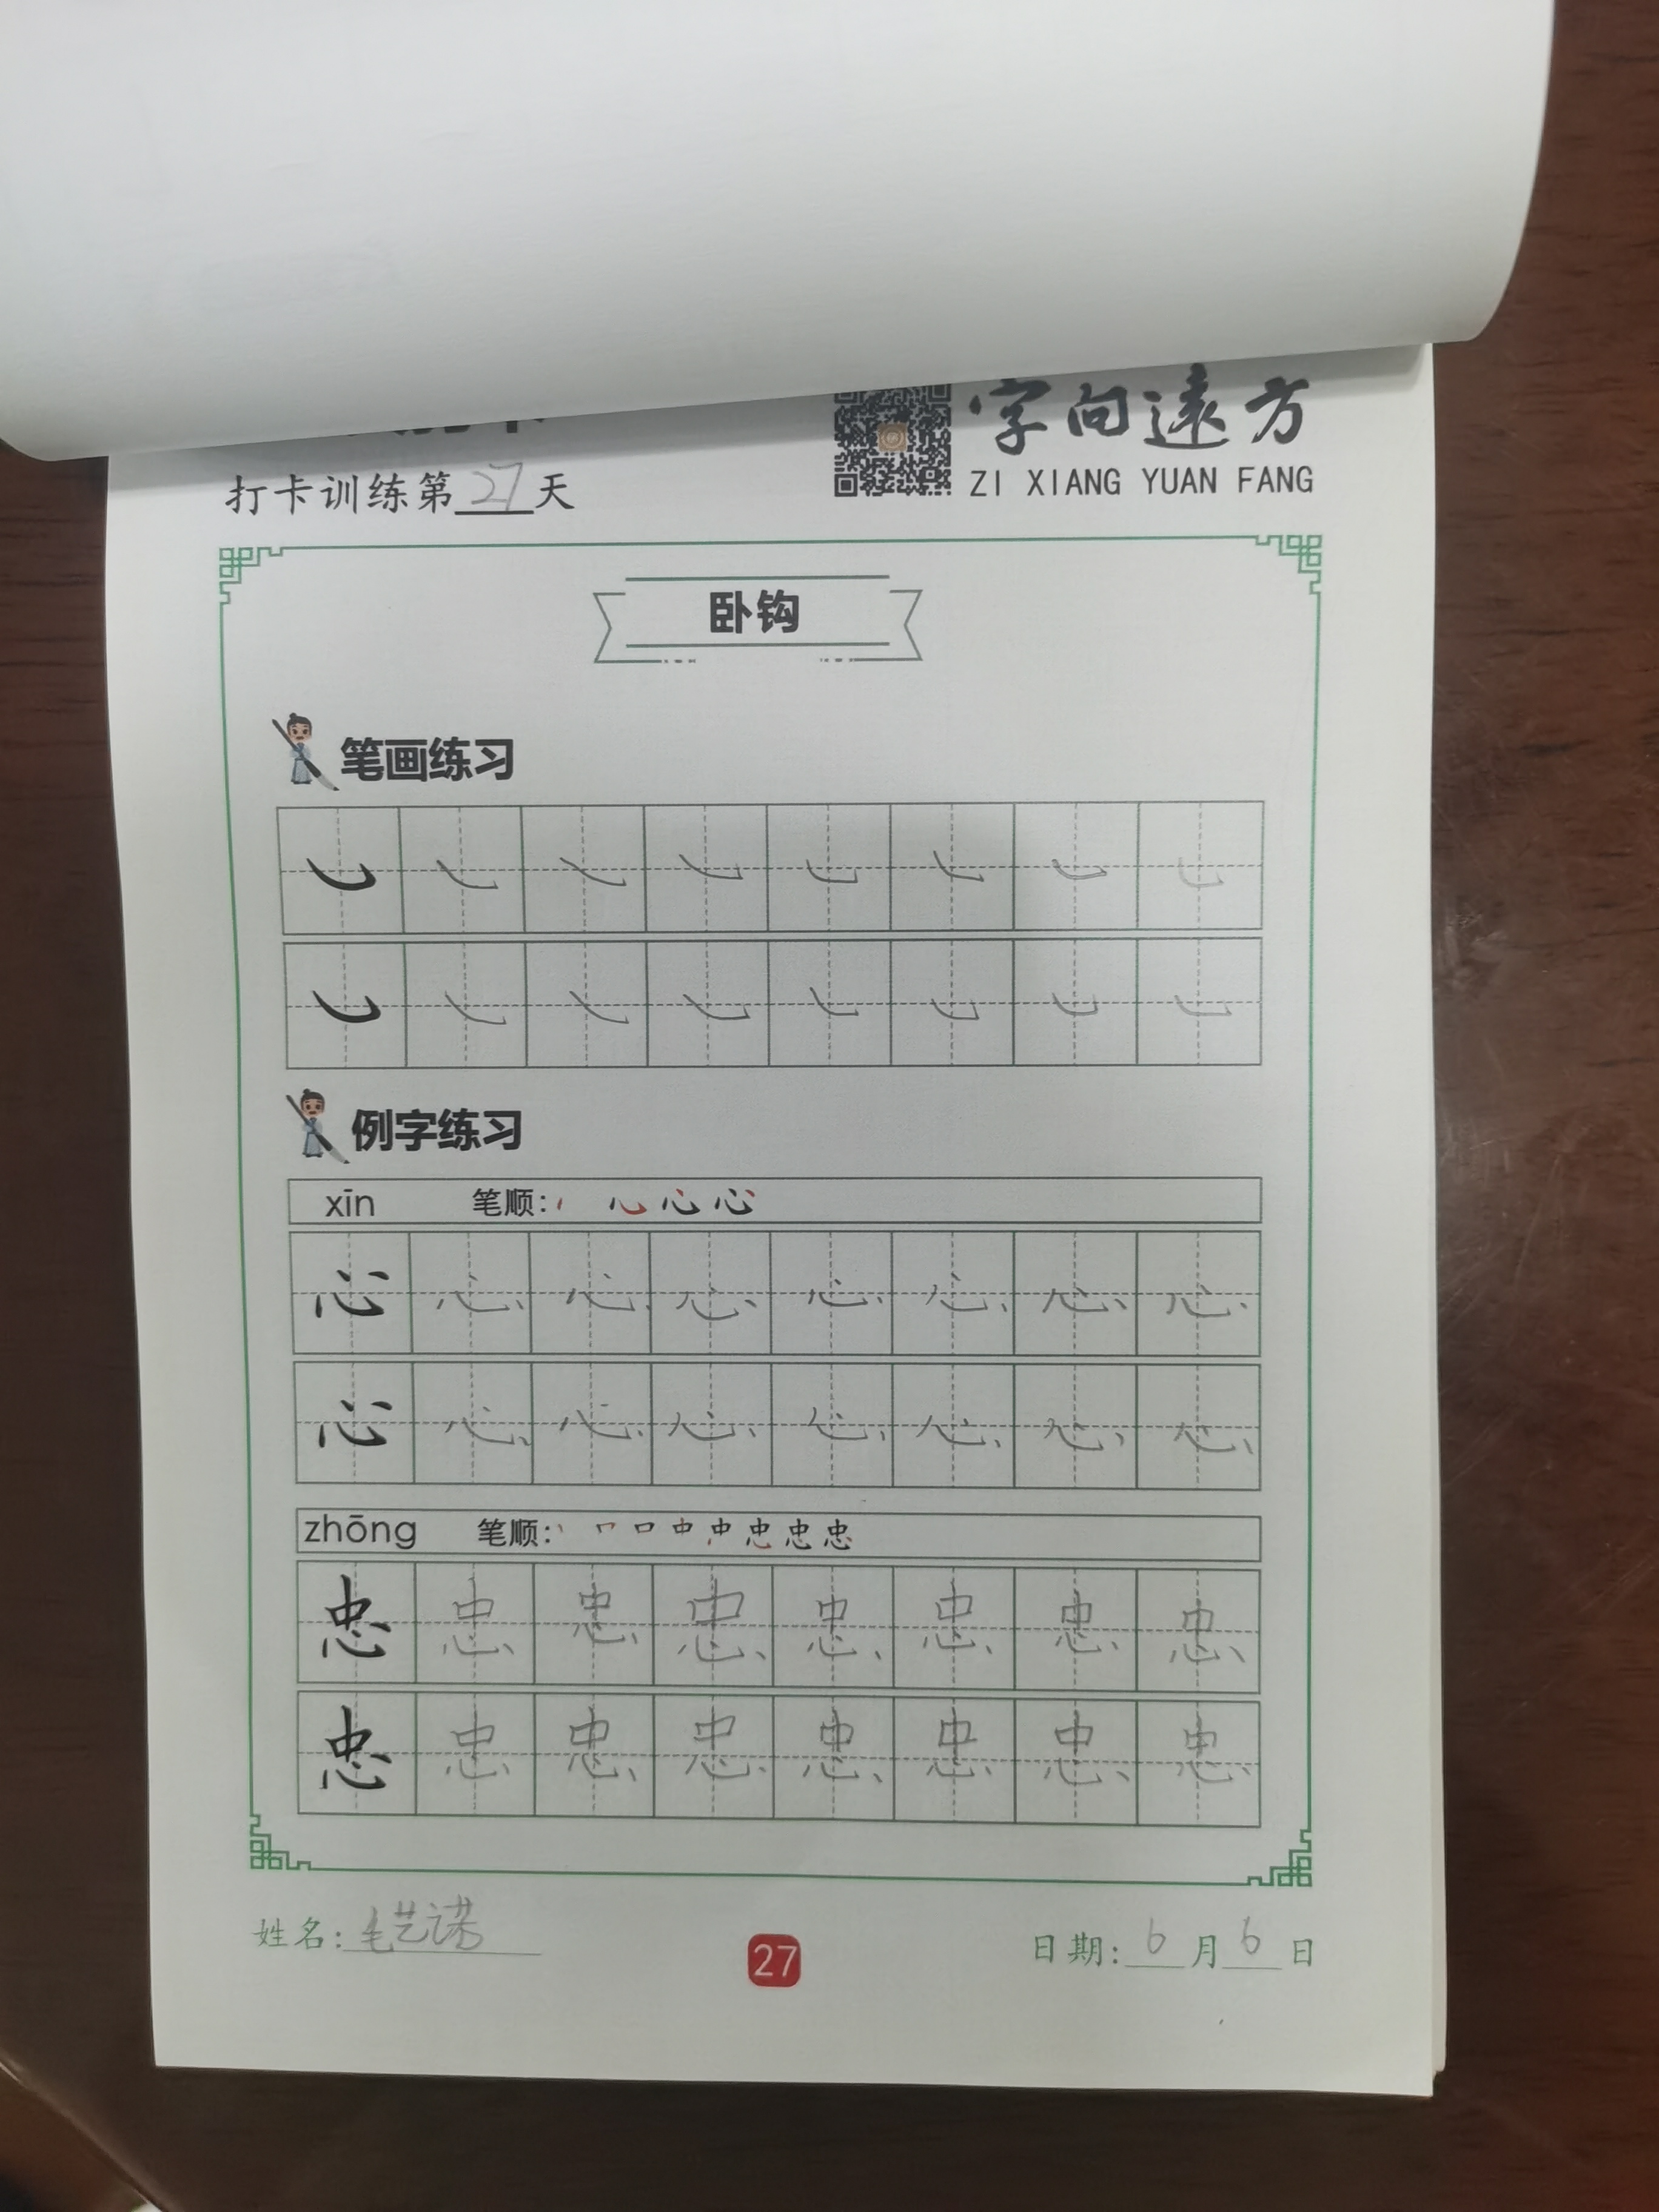 字向远方
ZI XIANG YUAN FANG
打卡训练第27天
卧钩
笔画练习
例字练习
xīn 笔顺:
心 心 心 心 心 心 心 心
心 心 心 心 心 心 心 心
zhōng 笔顺: 丨 冖 口 中 中 忠 忠 忠
忠 忠 忠 忠 忠 忠 忠 忠
忠 忠 忠 忠 忠 忠 忠 忠
姓名: 毛艺诺
27
日期: 6月6日